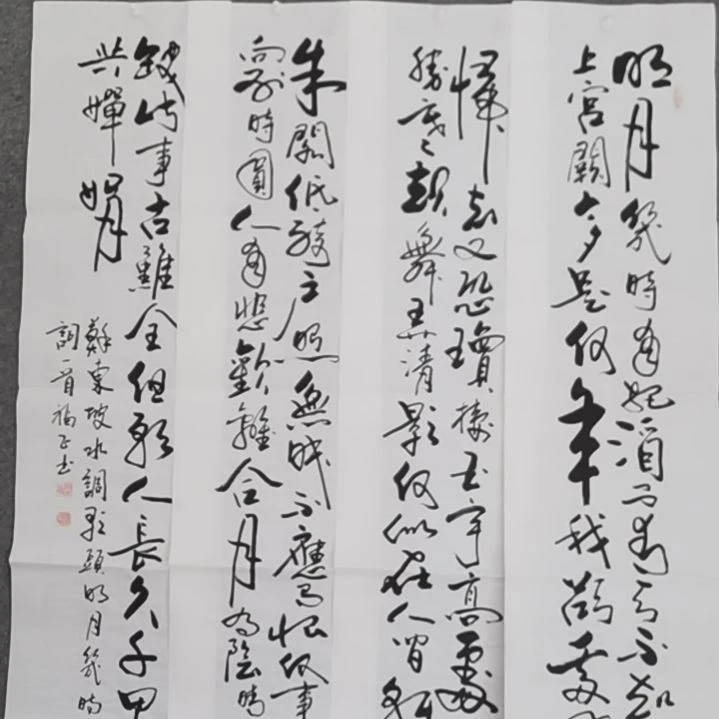 明月幾時有把酒問青天不知
上宮闕今夕是何年我欲乘
歸去又恐瓊樓玉宇高處
勝寒起舞弄清影何似在人間
朱閣低綺户照無眠不應有恨何事
向別時圓人有悲歡離合月有陰晴
缺此事古難全但願人長久千里
共嬋娟
蘇東坡水調歌頭明月幾時
詞一首福正書